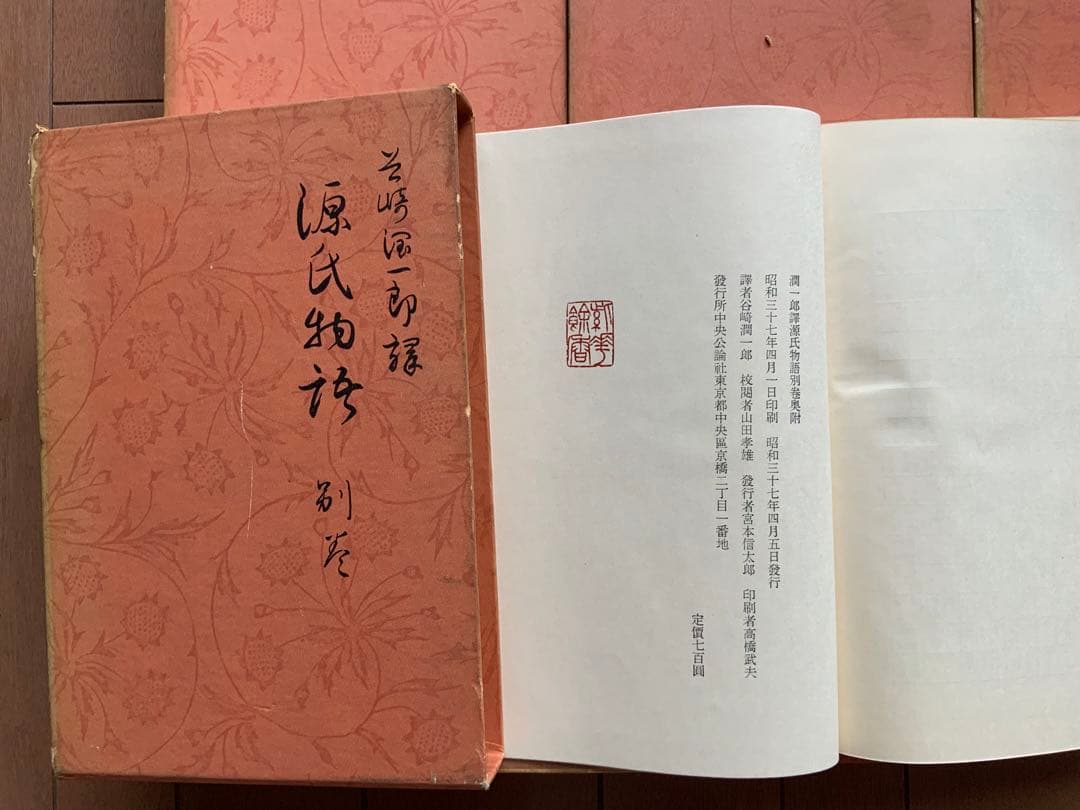 谷崎潤一郎譯
源氏物語 別巻
潤一郎譯源氏物語別卷奥附
昭和三十七年四月一日印刷 昭和三十七年四月五日發行
譯者谷崎潤一郎 校閲者山田孝雄 發行者宮本信太郎 印刷者高橋武夫
發行所中央公論社東京都中央區京橋二丁目一番地
定價七百圓